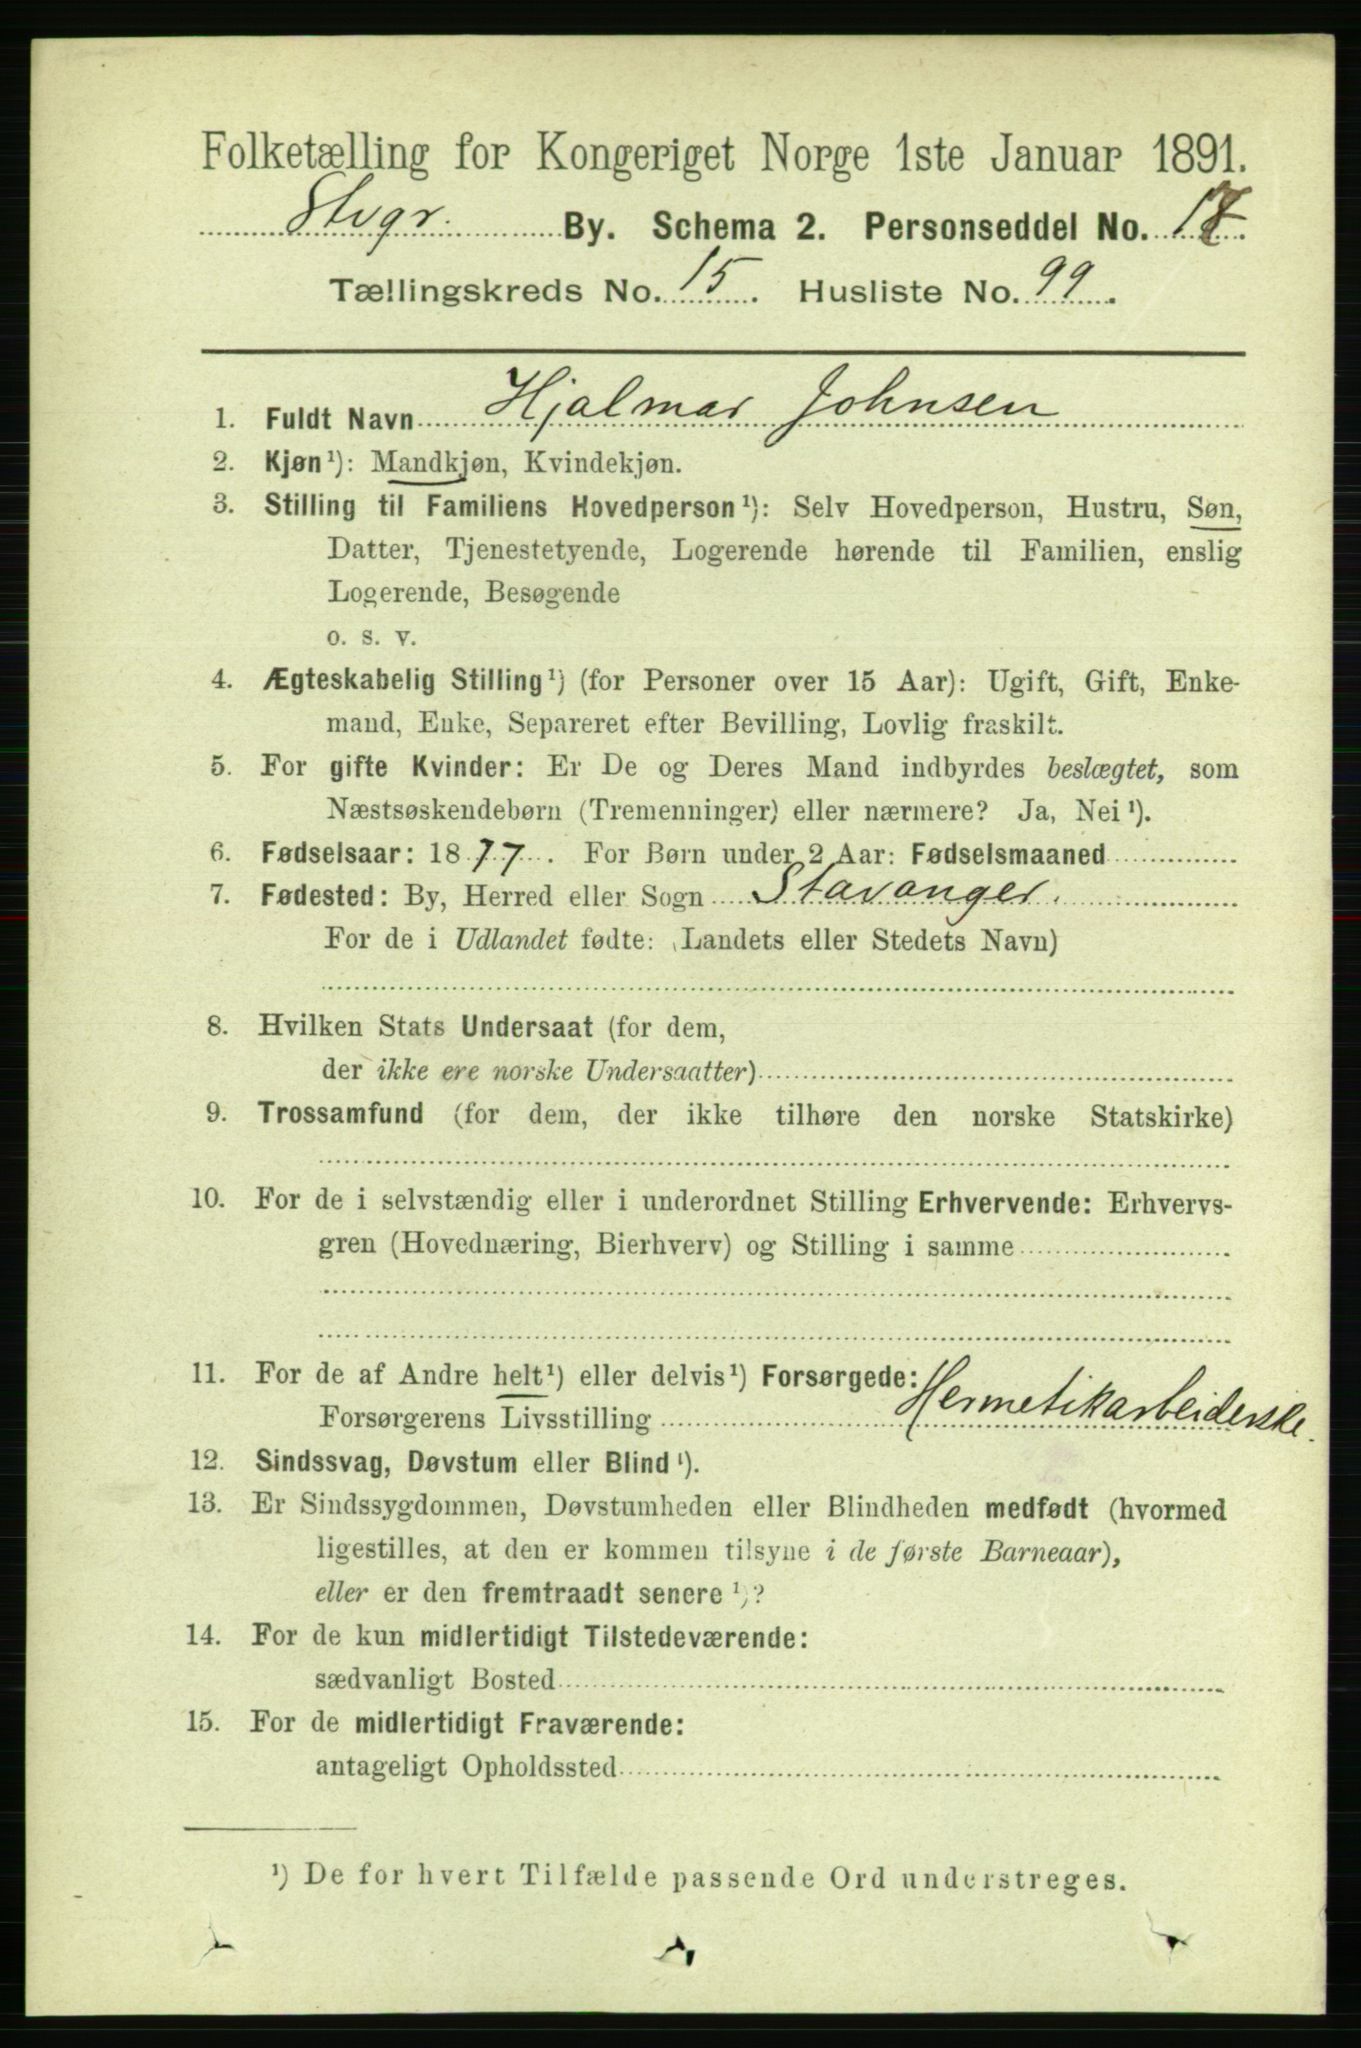 Folketælling for Kongeriget Norge 1ste Januar 1891.
Stvgr. By. Schema 2. Personseddel No. 17.
Tællingskreds No. 15. Husliste No. 99.
1. Fuldt Navn Hjalmar Johnsen
2. Kjøn¹): Mandkjøn, Kvindekjøn.
3. Stilling til Familiens Hovedperson¹): Selv Hovedperson, Hustru, Søn,
Datter, Tjenestetyende, Logerende hørende til Familien, enslig
Logerende, Besøgende
o. s. v.
4. Ægteskabelig Stilling¹) (for Personer over 15 Aar): Ugift, Gift, Enke-
mand, Enke, Separeret efter Bevilling, Lovlig fraskilt.
5. For gifte Kvinder: Er De og Deres Mand indbyrdes beslægtet, som
Næstsøskendebørn (Tremenninger) eller nærmere? Ja, Nei¹).
6. Fødselsaar: 1877. For Børn under 2 Aar: Fødselsmaaned
7. Fødested: By, Herred eller Sogn Stavanger.
For de i Udlandet fødte: (Landets eller Stedets Navn)
8. Hvilken Stats Undersaat (for dem,
der ikke ere norske Undersaatter)
9. Trossamfund (for dem, der ikke tilhøre den norske Statskirke)
10. For de i selvstændig eller i underordnet Stilling Erhvervende: Erhvervs-
gren (Hovednæring, Bierhverv) og Stilling i samme
11. For de af Andre helt¹) eller delvis¹) Forsørgede:
Forsørgerens Livsstilling Hermetikarbeiderske.
12. Sindssvag, Døvstum eller Blind¹).
13. Er Sindssygdommen, Døvstumheden eller Blindheden medfødt (hvormed
ligestilles, at den er kommen tilsyne i de første Barneaar),
eller er den fremtraadt senere¹)?
14. For de kun midlertidigt Tilstedeværende:
sædvanligt Bosted
15. For de midlertidigt Fraværende:
antageligt Opholdssted
¹) De for hvert Tilfælde passende Ord understreges.